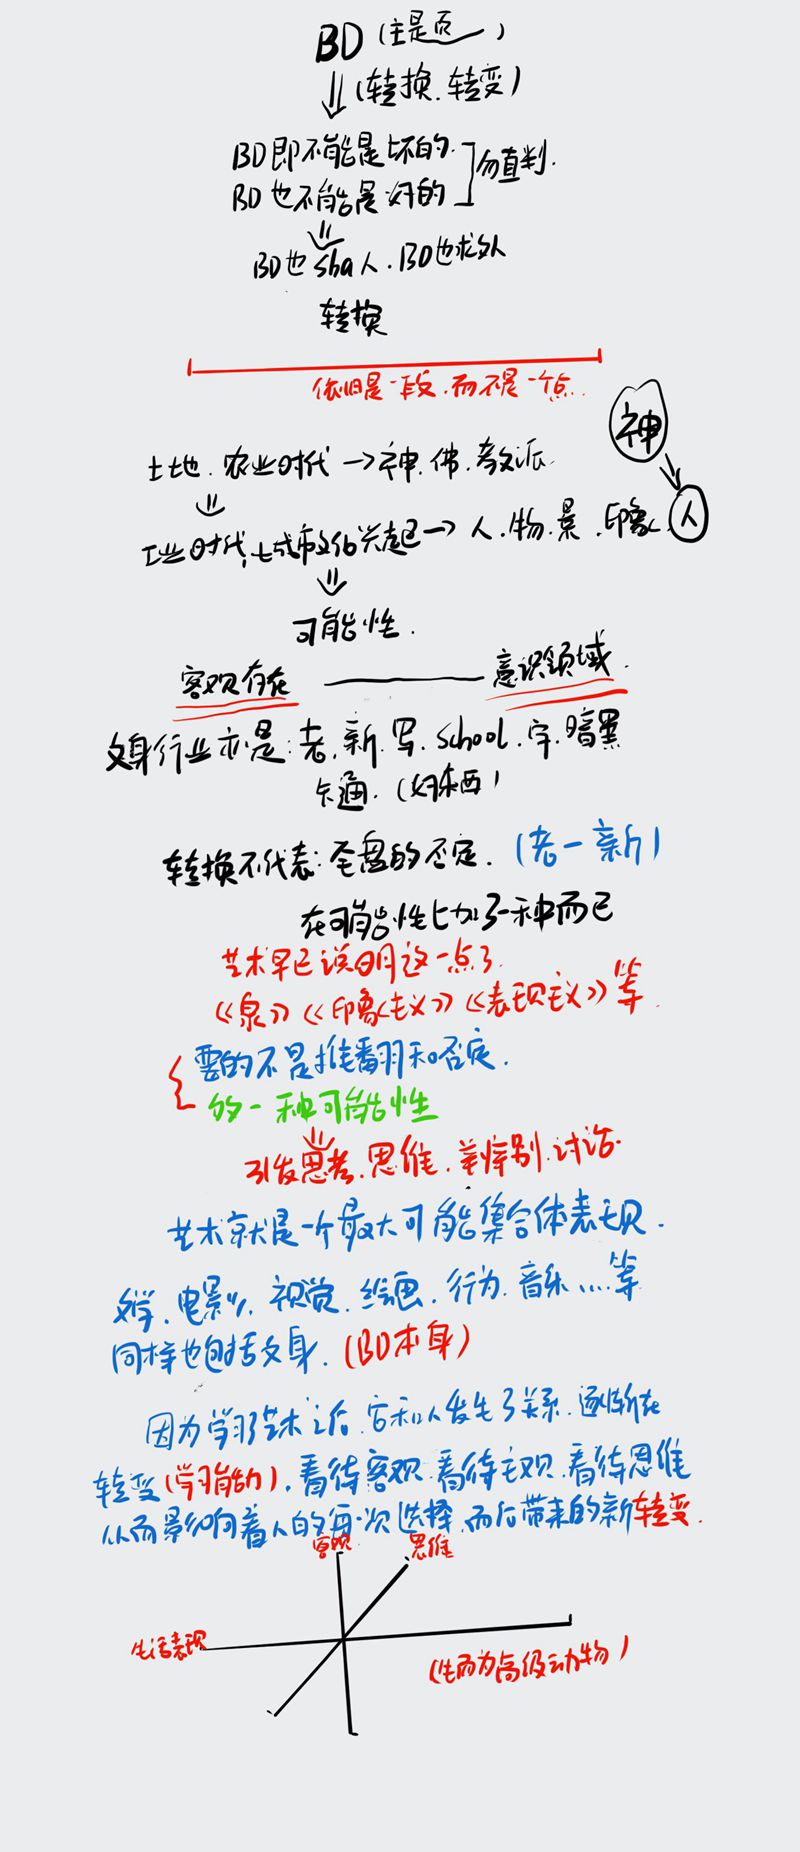 BD (主是页)
(转换.转变)
BD即不能是坏的.
BD也不能是好的
勿直判.
BD也sha人.BD也求人
转换
依旧是一段.而不是一个点.
神
土地.农业时代→神.佛.教派
工业时代.城市文化兴起→人.物.景.印象.
人
可能性.
客观存在——意识领域.
文身行业亦是:老.新.写.school.字.暗黑
卡通.(好东西)
转换不代表:全盘的否定.(老一新)
在可能性上加了一种而已
艺术早已说明这一点了
《泉》《印象主义》《表现主义》等
要的不是推翻和否定.
多一种可能性
引发思考.思维.辨别.讨论.
艺术就是一个最大可能集合体表现.
文学.电影.视觉.绘画.行为.音乐....等
同样也包括文身.(BD本身)
因为学习艺术之后.它和人发生了关系.逐渐在
转变(学习能力).看待客观.看待主观.看待思维
从而影响着人的每次选择.而后带来的新转变.
客观
思维
生活表现
(生而为高级动物)